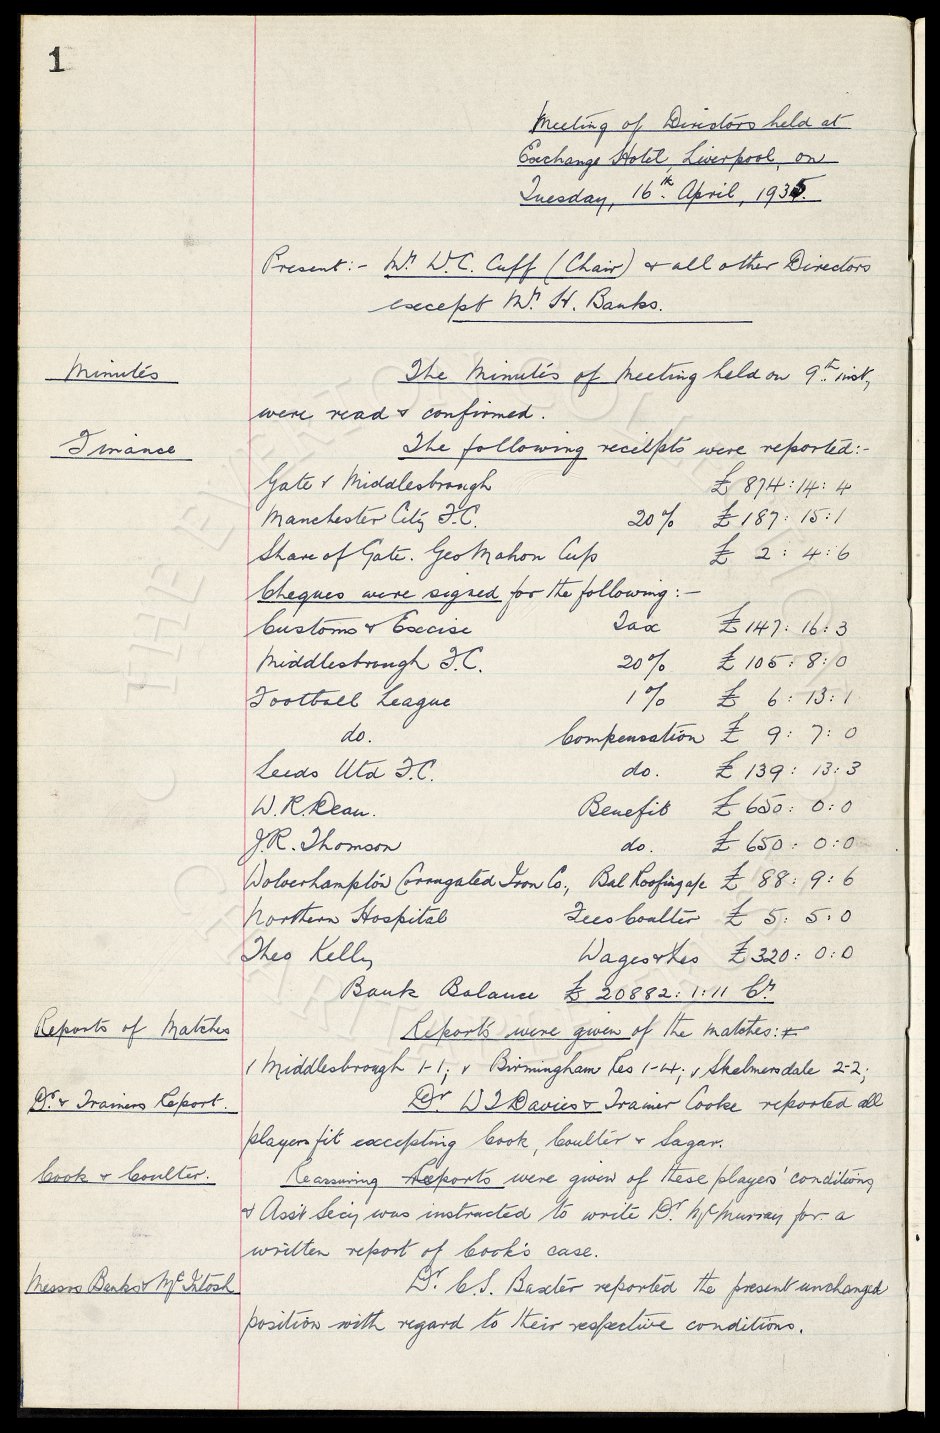 1
Meeting of Directors held at
Exchange Hotel, Liverpool, on
Tuesday, 16th. April, 1935.
Present:- Mr W.C. Cuff (Chair) & all other Directors
except Mr. H. Banks.
Minutes
The Minutes of Meeting held on 9th. inst,
were read & confirmed.
Finance
The following receipts were reported:-
Gate v Middlesbrough £ 874:14:4
Manchester City F.C. 20% £ 187:15:1
Share of Gate. Geo Mahon Cup £ 2:4:6
Cheques were signed for the following:-
Customs & Excise Tax £ 147:16:3
Middlesbrough F.C. 20% £ 105:8:0
Football League 1% £ 6:13:1
do. Compensation £ 9:7:0
Leeds Utd F.C. do. £ 139:13:3
W.R. Dean. Benefit £ 650:0:0
J.R. Thomson do. £ 650:0:0
Wolverhampton Corrugated Iron Co., Bal Roofing a/c £ 88:9:6
Northern Hospital Fees Coulter £ 5:5:0
Theo Kelly Wages &tes £ 320:0:0
Bank Balance £ 20882:1:11 Cr
Reports of Matches
Reports were given of the matches:-
v Middlesbrough 1-1; v Birmingham Res 1-4; v Skelmersdale 2-2;
Dr. & Trainers Report.
Dr W J Davies & Trainer Cooke reported all
players fit excepting Cook, Coulter & Sagar.
Cook & Coulter.
Reassuring Reports were given of these players' conditions
& Ass't Secy was instructed to write Dr. McMurray for a
written report of Cook's case.
Messrs Banks & McIntosh
Dr. C.S. Baxter reported the present unchanged
position with regard to their respective conditions.
THE EVERTON COLLECTION
CHARITABLE TRUST